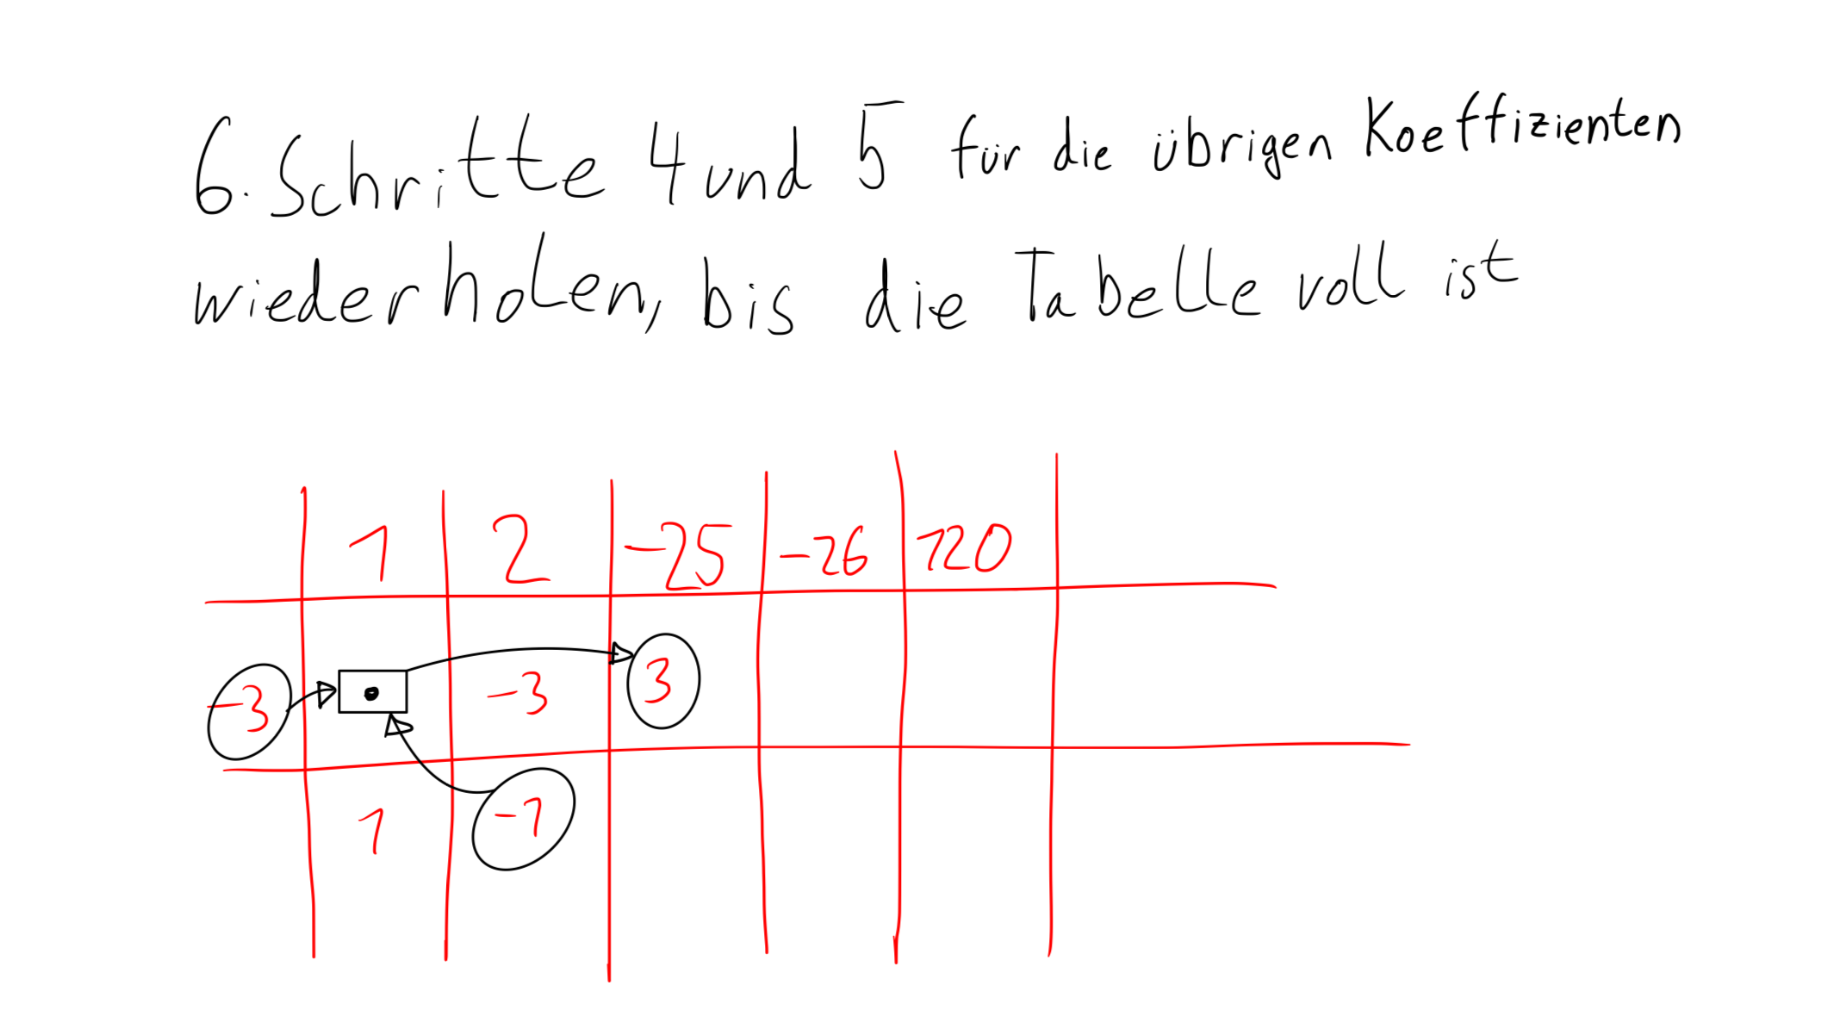 6. Schritte 4 und 5 für die übrigen Koeffizienten
wiederholen, bis die Tabelle voll ist
1 2 -25 -26 120
-3 • -3 3
1 -1